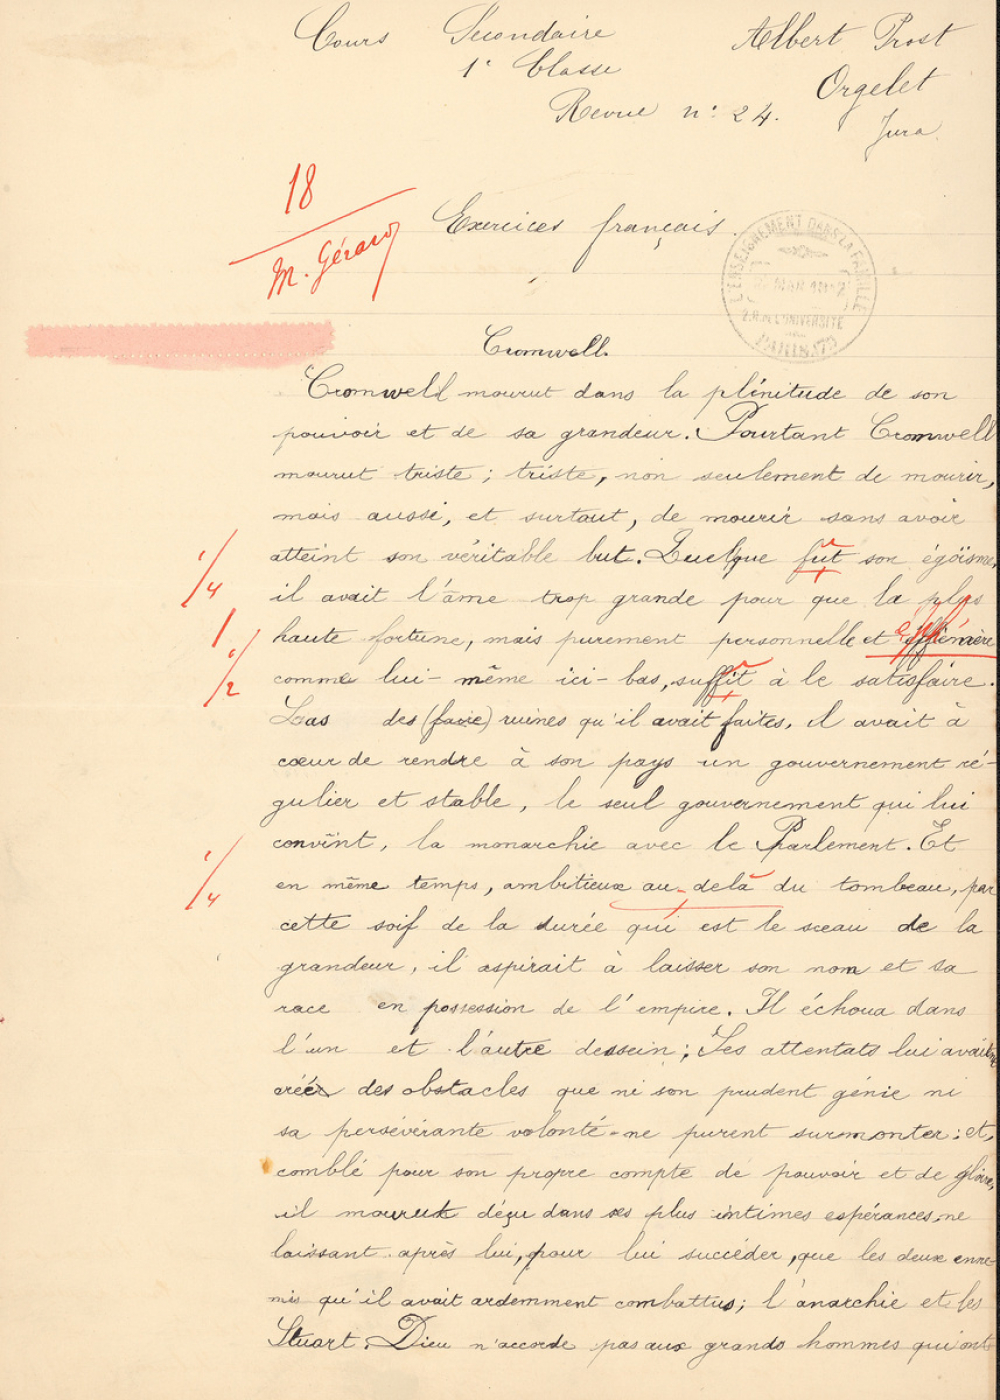 Cours Secondaire
Albert Prost
1e Classe
Orgelet
Revue n: 24.
Jura
18
M. Gérard
Exercices français.
L'ENSEIGNEMENT DANS LA FAMILLE
2, R. DE L'UNIVERSITÉ
PARIS
Cromwell.
Cromwell mourut dans la plénitude de son
pouvoir et de sa grandeur. Pourtant Cromwell
mourut triste ; triste, non seulement de mourir,
mais aussi, et surtout, de mourir sans avoir
1/4 atteint son véritable but. Quelque fut son égoïsme,
il avait l'âme trop grande pour que la plus
1 haute fortune, mais purement personnelle et
1/2 comme lui-même ici-bas, suffit à le satisfaire.
Las des (faire) ruines qu'il avait faites, il avait à
cœur de rendre à son pays un gouvernement ré-
gulier et stable, le seul gouvernement qui lui
convînt, la monarchie avec le Parlement. Et
1/4 en même temps, ambitieux au-delà du tombeau, par
cette soif de la durée qui est le sceau de la
grandeur, il aspirait à laisser son nom et sa
race en possession de l'empire. Il échoua dans
l'un et l'autre dessein ; Ses attentats lui avaient
créé des obstacles que ni son prudent génie ni
sa persévérante volonté ne purent surmonter : et,
comblé pour son propre compte de pouvoir et de gloire,
il mourut déçu dans ses plus intimes espérances, ne
laissant après lui, pour lui succéder, que les deux enne-
mis qu'il avait ardemment combattus ; l'anarchie et les
Stuart. Dieu n'accorde pas aux grands hommes qui ont